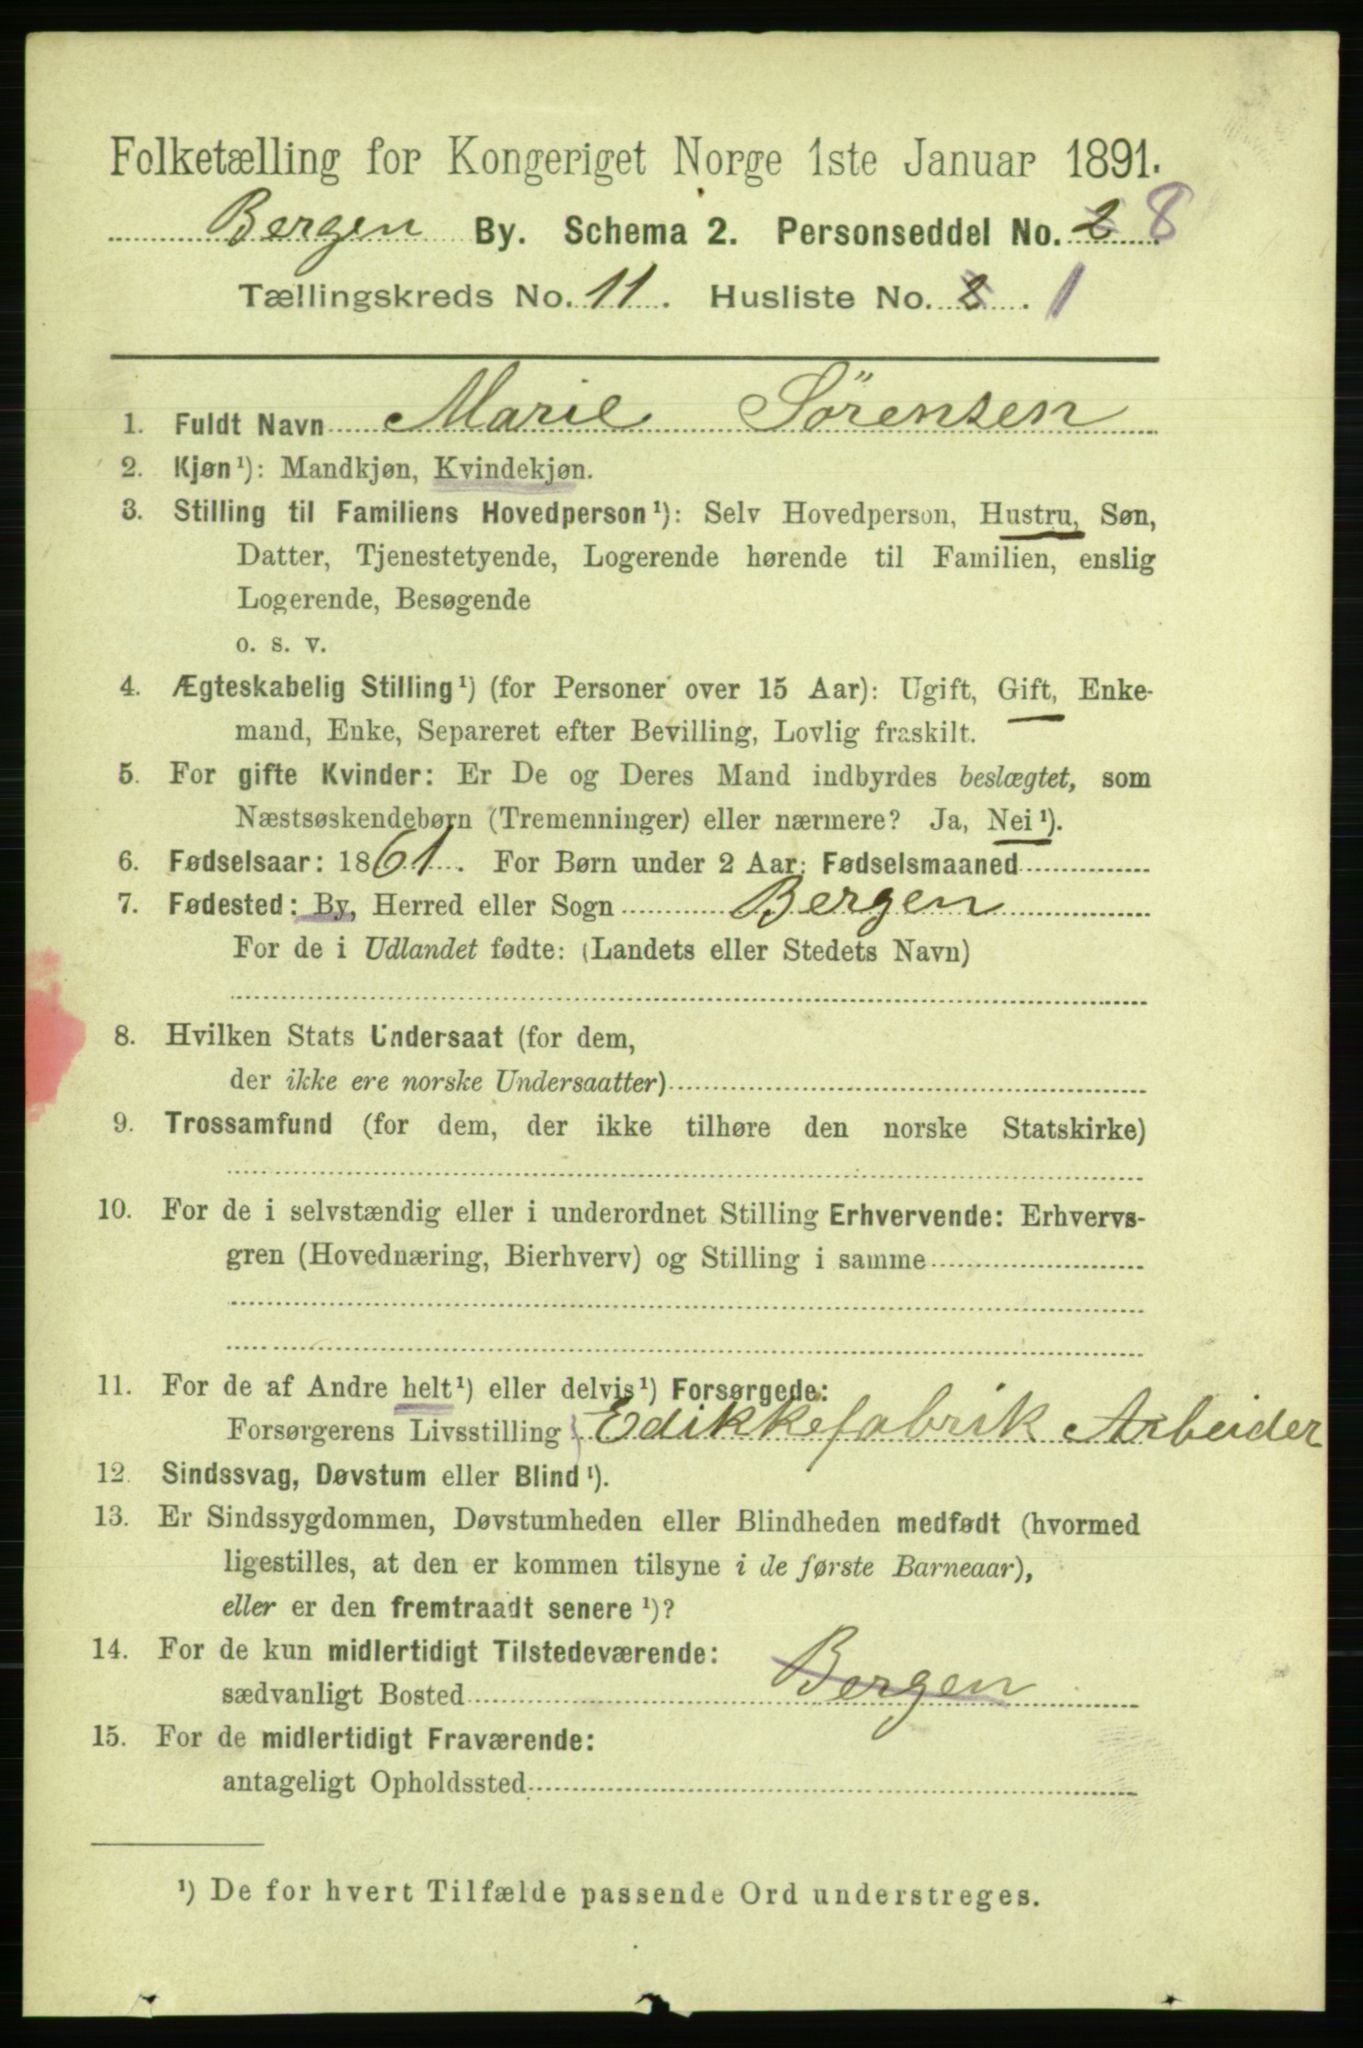 Folketælling for Kongeriget Norge 1ste Januar 1891.
Bergen By. Schema 2. Personseddel No. 2 8
Tællingskreds No. 11. Husliste No. 2. 1
1. Fuldt Navn Marie Sörensen
2. Kjøn¹): Mandkjøn, Kvindekjøn.
3. Stilling til Familiens Hovedperson¹): Selv Hovedperson, Hustru, Søn,
Datter, Tjenestetyende, Logerende hørende til Familien, enslig
Logerende, Besøgende
o. s. v.
4. Ægteskabelig Stilling¹) (for Personer over 15 Aar): Ugift, Gift, Enke-
mand, Enke, Separeret efter Bevilling, Lovlig fraskilt.
5. For gifte Kvinder: Er De og Deres Mand indbyrdes beslægtet, som
Næstsøskendebørn (Tremenninger) eller nærmere? Ja, Nei¹).
6. Fødselsaar: 1861. For Børn under 2 Aar: Fødselsmaaned
7. Fødested: By, Herred eller Sogn Bergen
For de i Udlandet fødte: (Landets eller Stedets Navn)
8. Hvilken Stats Undersaat (for dem,
der ikke ere norske Undersaatter)
9. Trossamfund (for dem, der ikke tilhøre den norske Statskirke)
10. For de i selvstændig eller i underordnet Stilling Erhvervende: Erhvervs-
gren (Hovednæring, Bierhverv) og Stilling i samme
11. For de af Andre helt¹) eller delvis¹) Forsørgede:
Forsørgerens Livsstilling Edikkefabrik Arbeider
12. Sindssvag, Døvstum eller Blind¹).
13. Er Sindssygdommen, Døvstumheden eller Blindheden medfødt (hvormed
ligestilles, at den er kommen tilsyne i de første Barneaar),
eller er den fremtraadt senere¹)?
14. For de kun midlertidigt Tilstedeværende:
sædvanligt Bosted Bergen
15. For de midlertidigt Fraværende:
antageligt Opholdssted
¹) De for hvert Tilfælde passende Ord understreges.